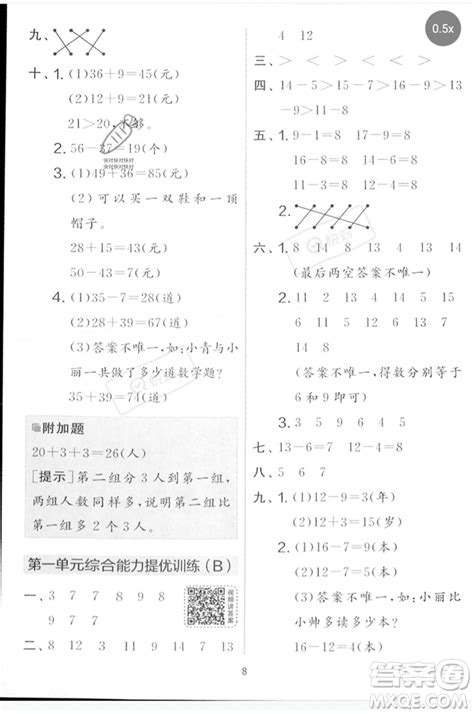 九、
十、1. (1)36+9=45(元)
(2)12+9=21(元)
21>20,不够。
2. 56-37=19(个)
3. (1)49+36=85(元)
(2)可以买一双鞋和一顶
帽子。
28+15=43(元)
50-43=7(元)
4. (1)35-7=28(道)
(2)28+39=67(道)
(3)答案不唯一,如:小青与小
丽一共做了多少道数学题?
35+39=74(道)
附加题
20+3+3=26(人)
[提示]第二组分3人到第一组,
两组人数同样多,说明第二组比
第一组多2个3人。
第一单元综合能力提优训练(B)
一、3 7 7 8 9 8
9 7 7
视频讲答案
二、8 13 19 9 13 13
4 12
三、> < > < > <
四、14-5>15-7>16-9
17-9>10-3>11-8
五、1. 9-1=8 11-3=8
16-8=8 14-6=8
13-5=8 12-4=8
2.
六、1. 8 14 8 13 13 14
(最后两空答案不唯一)
2. 11 18 13 12 14 15
6 11 5 12 6 13
(答案不唯一,得数分别是5
和9即可)
七、9 6 7 7 9 9
八、5 6 7
九、1. (1)12-9=3(元)
(2)13-8=5(岁)
2. (1)16-7=9(本)
(2)12-3=9(本)
(3)答案不唯一,如:小丽比
小帅多读多少本?
16-12=4(本)
8
0.5x
答案圈
MXQE.COM